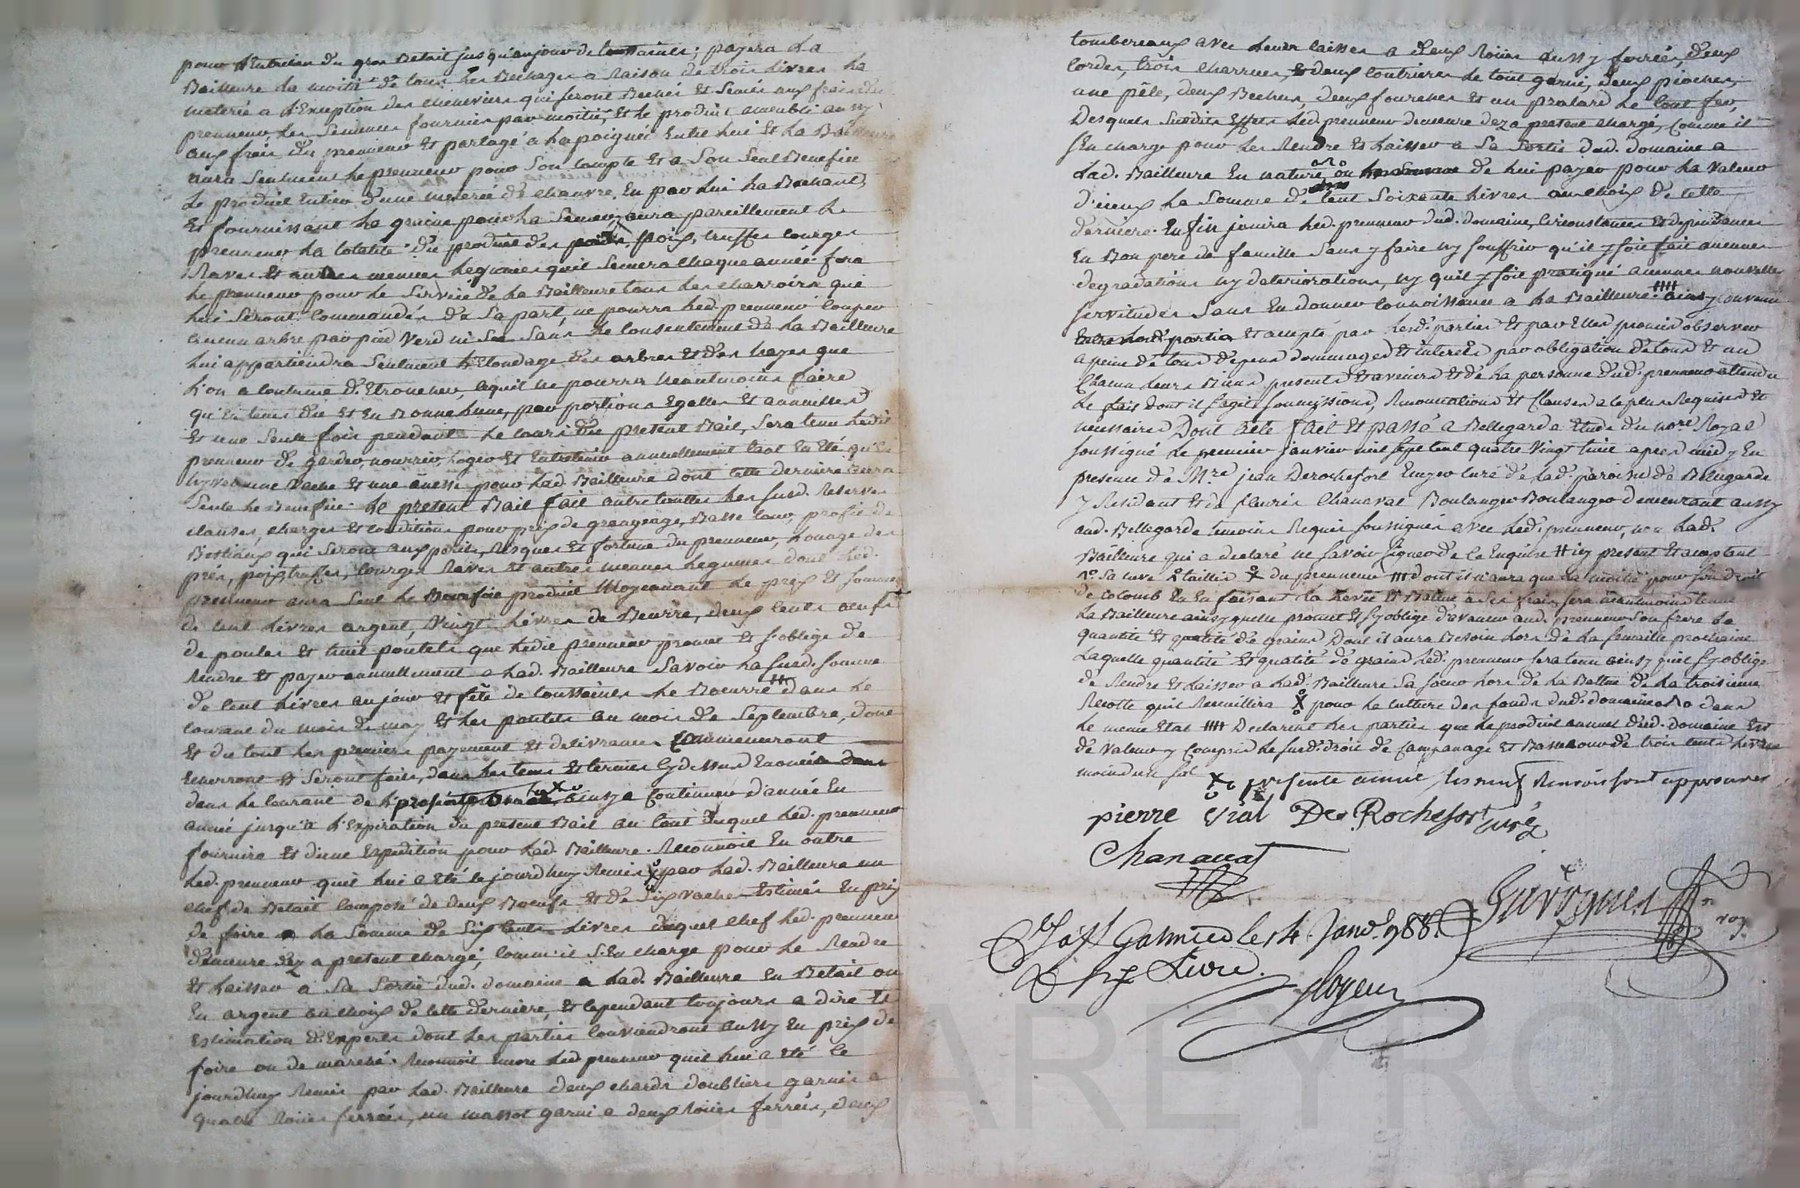 pour l'entretien du gros Betail jusqu'au jour de toussaints; payera La
Bailleure la moitié de tous les Bechages a Raison de trois livres La
meterée a L'Exception des cheneviers qui seront Bechés et Semés aux frais du
preneur, les Semences fournies par moitié, et le produit
aux frais du preneur et partagé a la poignée Entre lui et la Bailleure
aura Seulement le preneur pour Son Compte et a Son Seul Benefice
Le produit Entier d'une meterée de chanvre En par lui la Bechant,
Et fournissant la graine pour la Semer, aura pareillement le
preneur la totalité du produit des pois, truffes courges
Raves et autres menues legumes qu'il Semera chaque année fera
le preneur pour le Service de la Bailleure tous les charrois qui
lui Seront Commandés de Sa part, ne pourra led. preneur Couper
aucun arbre par pied Verd ni Sec Sans le Consentement de la Bailleure
lui appartiendra Seulement l'Elondage des arbres et des hayes que
l'on a Coutume d'Etroncher, aquil ne pourra neantmoins faire
qu'En tems du et En Bonne lune, par portions Egalles et annuelles
et une Seule fois pendant le cours du present Bail, Sera tenu ledit
preneur de garder, nourrir, loger et Entretenir annuellement tant En Eté qu'En
hyver une Vache et une anesse pour lad. Bailleure dont cette derniere aura
Seule le Benefice. Le present Bail fait outre toutes les susd. Reserves
clauses, charges et Conditions pour prix de grangeage, Basse Cour, profit de
Bestiaux qui Seront aux perils, Risques et fortune du preneur, louage des
prés, pois, truffes, courges Raves et autres menues legumes dont led.
preneur aura Seul le produit Moyenant le prix et Somme
de Cent livres argent, Vingt livres de Beurre, deux Cents oeufs
de poules et trois poulets que ledit preneur promet et s'oblige de
Rendre et payer annuellement a lad. Bailleure Savoir la susd. Somme
de Cent livres au jour et fête de toussaints le Beurre dans le
Courant du mois de may et les poulets au mois de Septembre, dont
et du tout les premiers payement et delivrance Commenceront
Seront faits, dans les tems et termes Cy dessus Enoncés
dans le Courant de ainsy a Continuer d'année En
année jusqu'a L'Expiration du present Bail au tout duquel led. preneur
fournira Et d'une Expedition pour lad. Bailleure. Reconnoit En outre
led. preneur quil lui a Eté Ce jourd'huy Remis par lad. Bailleure un
chef de Betail Composé de deux Boeufs et de Six Vaches Estimés En prix
de foire la Somme de Six Cents livres duquel chef led. preneur
demeure dez a present chargé, Comm'il S'En charge pour le Rendre
Et laisser a Sa Sortie dud. domaine a lad. Bailleure En Betail ou
En argent au choix de Cette derniere, et Cependant toujours a dire Et
Estimation d'Experts dont les parties Conviendront aussy En prix de
foire ou de marché. Reconnoit Encore led. preneur quil lui a Eté Ce
jourd'huy Remis par lad. Bailleure deux chards doubliers garnis a
quatre Roues ferrées, un massot garni a deux Roues ferrées, deux
tombereaux avec leurs laisses a deux Roues aussy ferrées, deux
cordes, trois charrues, et deux Coutrieres le tout garni, deux pioches,
une pêle, deux Beches, deux fourches et un prolard le tout fer,
Desquels Susdits Effets led. preneur demeure deza present chargé, Comme il
s'En charge pour les Rendre et laisser a Sa Sortie dud. domaine a
Lad. Bailleure En nature ou de lui payer pour la Valeur
d'iceux la Somme de Cent Soixante livres au choix de Cette
derniere. Enfin jouira led. preneur dud. domaine, Circonstances et dependances
En Bon pere de famille Sans y faire ny Souffrir qu'il y soit fait aucunes
degradations ny deteriorations, ny quil y soit pratiqué aucunes nouvelles
servitudes Sans En donner Connoissance a la Bailleure. ainsy convenu
Entre lesd. parties et accepté par lesd. parties Et par Elles promis observer
a peine de tous depens dommages Et interets par obligation de tous Et un
Chacun leurs Biens presents Et avenirs Et de la personne dud. preneur attendu
Le fait dont il s'agit, soumissions, Renonciations Et Clauses a Ce plus Requises Et
necessaires Dont acte fait Et passé a Bellegarde Etude du nore Royal
soussigné Le premier janvier mil sept cent quatre Vingt huit apres midy En
presence de Mre jean Derochefort Curé de lad. paroisse de Bellegarde
y Residant et de fleuris Chanavat Boulanger demeurant aussy
aud. Bellegarde temoins Requis soussignés avec led. preneur, non lad.
Bailleure qui a declaré ne Savoir Signer de Ce Enquise present Et acceptant
Sa cure taillis du preneur dont il n'aura que la moitié pour Son droit
de colomb En En faisant la levée Et Battue a Ses frais sera neantmoins tenue
La Bailleure ainsy quelle promet Et s'oblige d'avancer aud. preneur Son frere la
quantité Et qualité de grains Dont il aura Besoin lors de la Semaille prochaine
Laquelle quantité Et qualité de grains led. preneur Sera tenu ainsy quil s'y oblige
de Rendre Et laisser a lad. Bailleure Sa Soeur lors de la Battue de la troisieme
Recolte quil Recueillira pour la Culture des fonds dud. domaine dans
Le meme Etat Declarent les parties que le produit annuel dud. domaine Est
de Valeur y Compris le susd. droit de Campanage et Bassecour de trois Cents livres
presente année Les neuf Renvois sont approuvés
pierre Vial De Rochefort Curé
Chanavat
Guivognes
n roy.
Galmier le 14 Janv. 988.